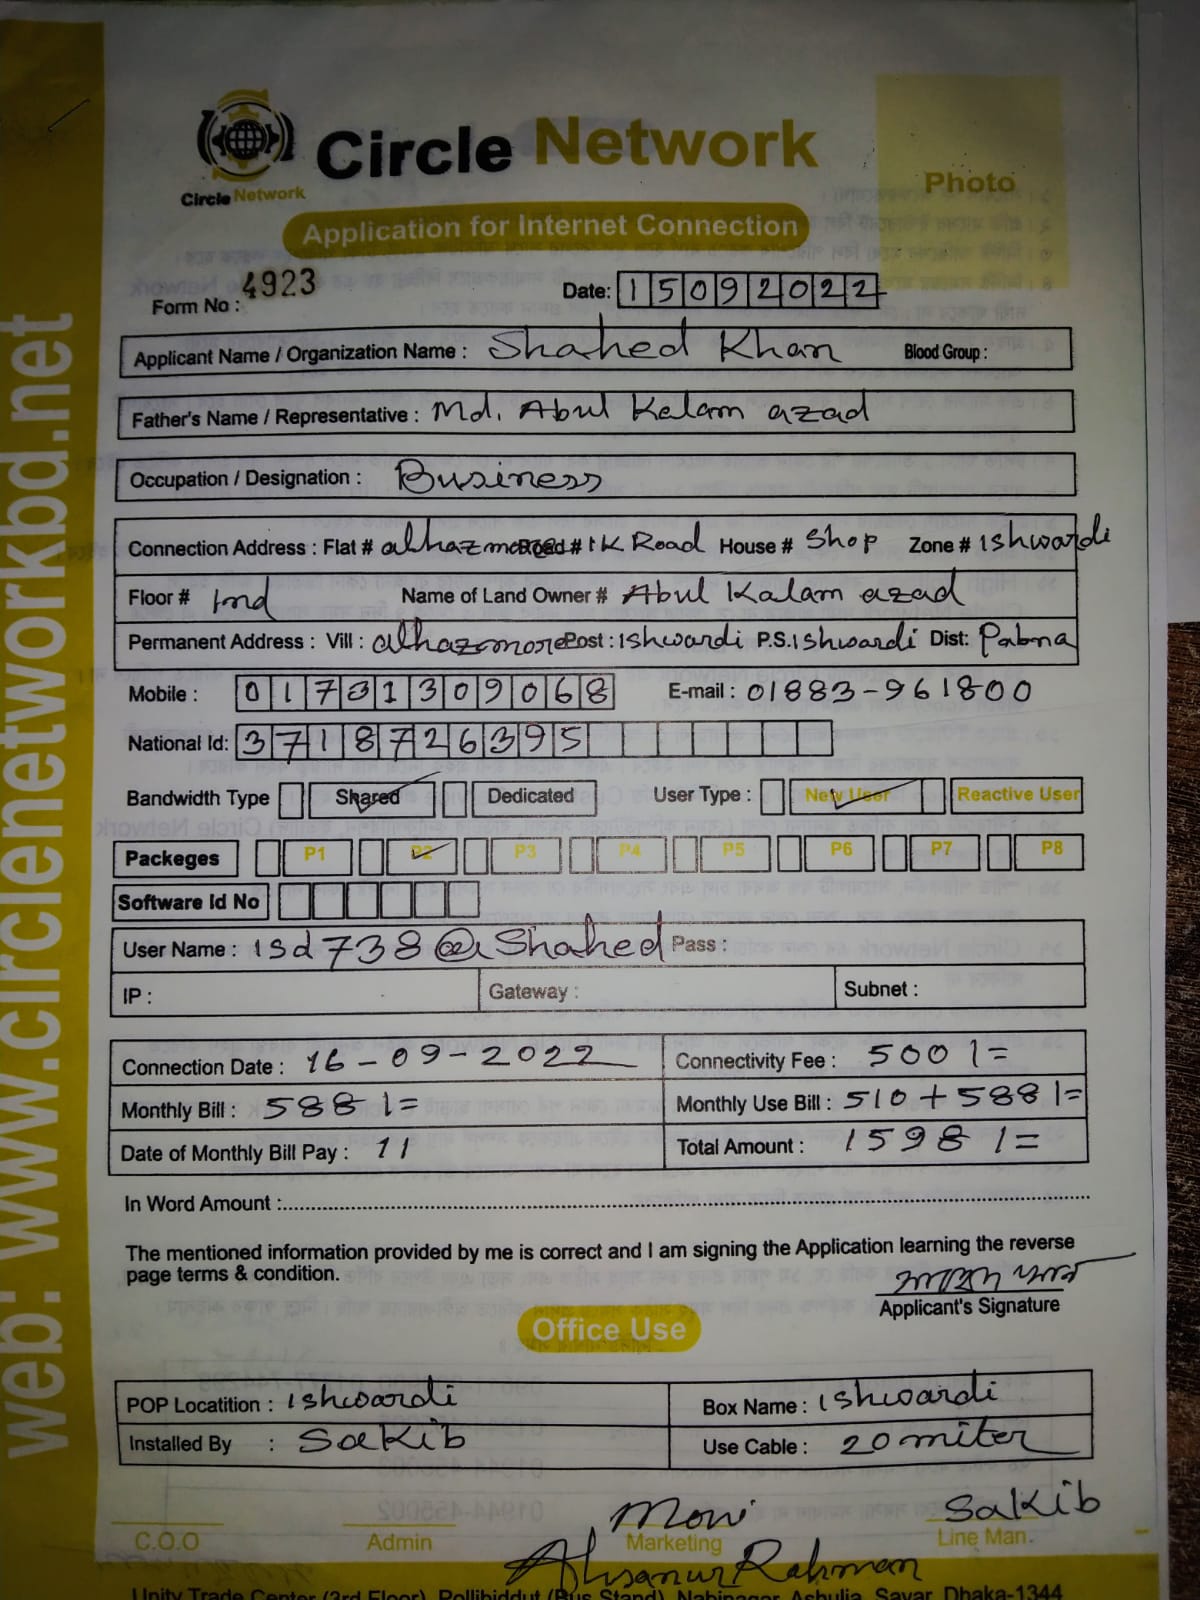 web: www.circlenetworkbd.net
Circle Network
Circle Network
Photo
Application for Internet Connection
Form No : 4923
Date: 15092022
Applicant Name / Organization Name : Shahed Khan Blood Group :
Father's Name / Representative : Md. Abul Kalam azad
Occupation / Designation : Business
Connection Address : Flat # alhaz more Road # 1K Road House # Shop Zone # Ishwardi
Floor # Name of Land Owner # Abul Kalam azad
Permanent Address : Vill : alhazmore Post : Ishwardi P.S. Ishwardi Dist: Pabna
Mobile : 01731309068 E-mail : 01883-961800
National Id: 3718726395
Bandwidth Type Shared Dedicated User Type : New User Reactive User
Packeges P1 P2 P3 P4 P5 P6 P7 P8
Software Id No
User Name : isd738@Shahed Pass :
IP : Gateway : Subnet :
Connection Date : 16-09-2022 Connectivity Fee : 500/=
Monthly Bill : 588/= Monthly Use Bill : 510+588/=
Date of Monthly Bill Pay : 11 Total Amount : 1598/=
In Word Amount :
The mentioned information provided by me is correct and I am signing the Application learning the reverse
page terms & condition.
Applicant's Signature
Office Use
POP Locatition : Ishwardi Box Name : Ishwardi
Installed By : Sakib Use Cable : 20 miter
Moni Sakib
C.O.O Admin Marketing Line Man.
Ahsanur Rahman
Unity Trade Center (3rd Floor), Pollibiddut (Bus Stand), Nabinagar, Ashulia, Savar, Dhaka-1344